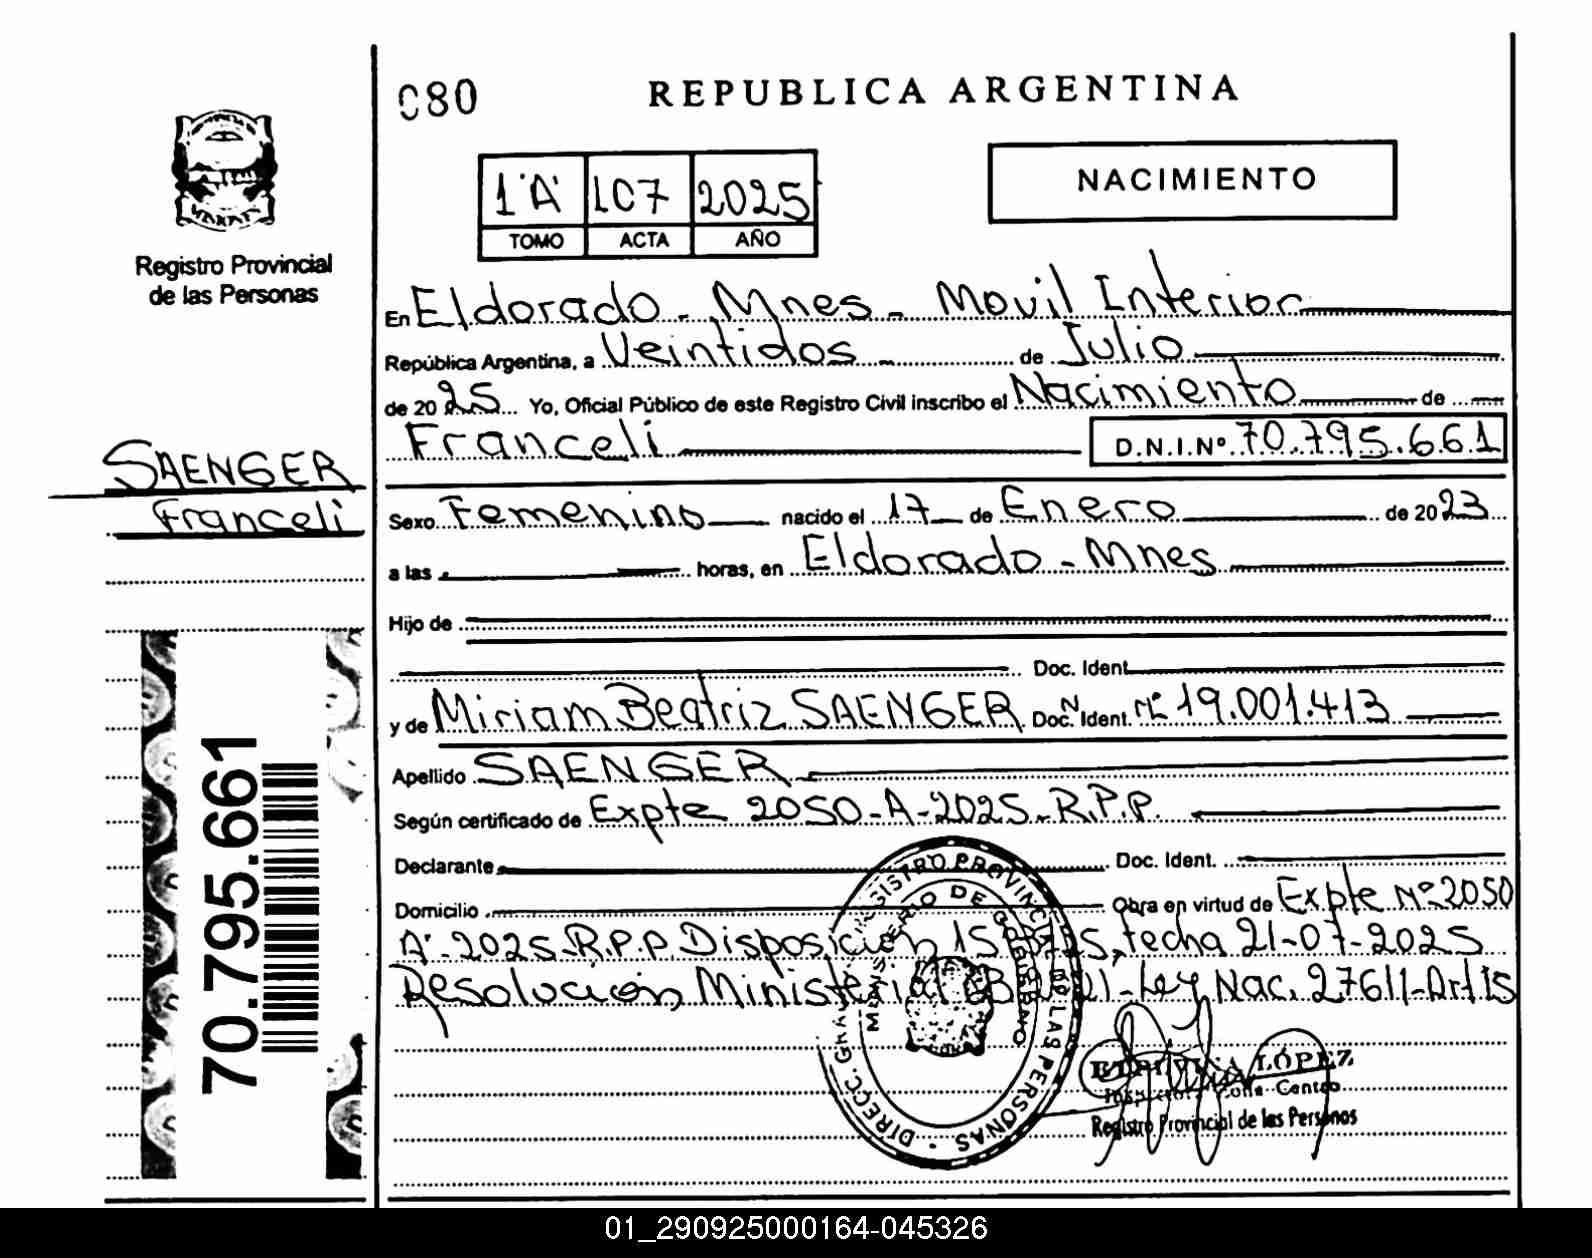 080
REPUBLICA ARGENTINA
1 "A" 107 2025
TOMO ACTA AÑO
NACIMIENTO
Registro Provincial
de las Personas
En Eldorado - Mnes - Movil Interior
República Argentina, a Veintidos de Julio
de 2025 Yo, Oficial Público de este Registro Civil inscribo el Nacimiento de
Franceli D.N.I.Nº 70.795.661
SAENGER
Franceli
Sexo Femenino nacido el 17 de Enero de 2023
a las horas, en Eldorado - Mnes
Hijo de
Doc. Ident.
y de Miriam Beatriz SAENGER Doc. Ident. 19.001.413
Apellido SAENGER
Según certificado de Expte 2050-A-2025-R.P.P.
Declarante Doc. Ident.
Domicilio Obra en virtud de Expte Nº 2050
"A"-2025-R.P.P. Disposición fecha 21-07-2025
Resolución Ministerial - Ley Nac. 27611-Art 15
70.795.661
DIRECC. GRAL. REGISTRO PROVINCIAL DE LAS PERSONAS
MINISTERIO DE GOBIERNO
LÓPEZ
Zona Centro
Registro Provincial de las Personas
01_290925000164-045326